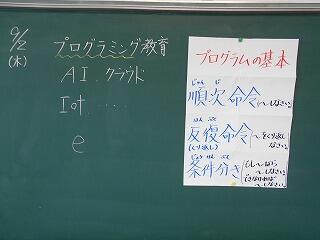 9/2
(木)
プログラミング教育
AI. クラウド
Iot.....
e
プログラムの基本
じゅんじ
順次命令(〜しなさい。)
はんぷく
反復命令(〜をくり返し
(くり返し)
なさい。)
じょうけんぶき
条件分き(もし〜なら
〜しなさい。
でなければ
〜しなさい。)